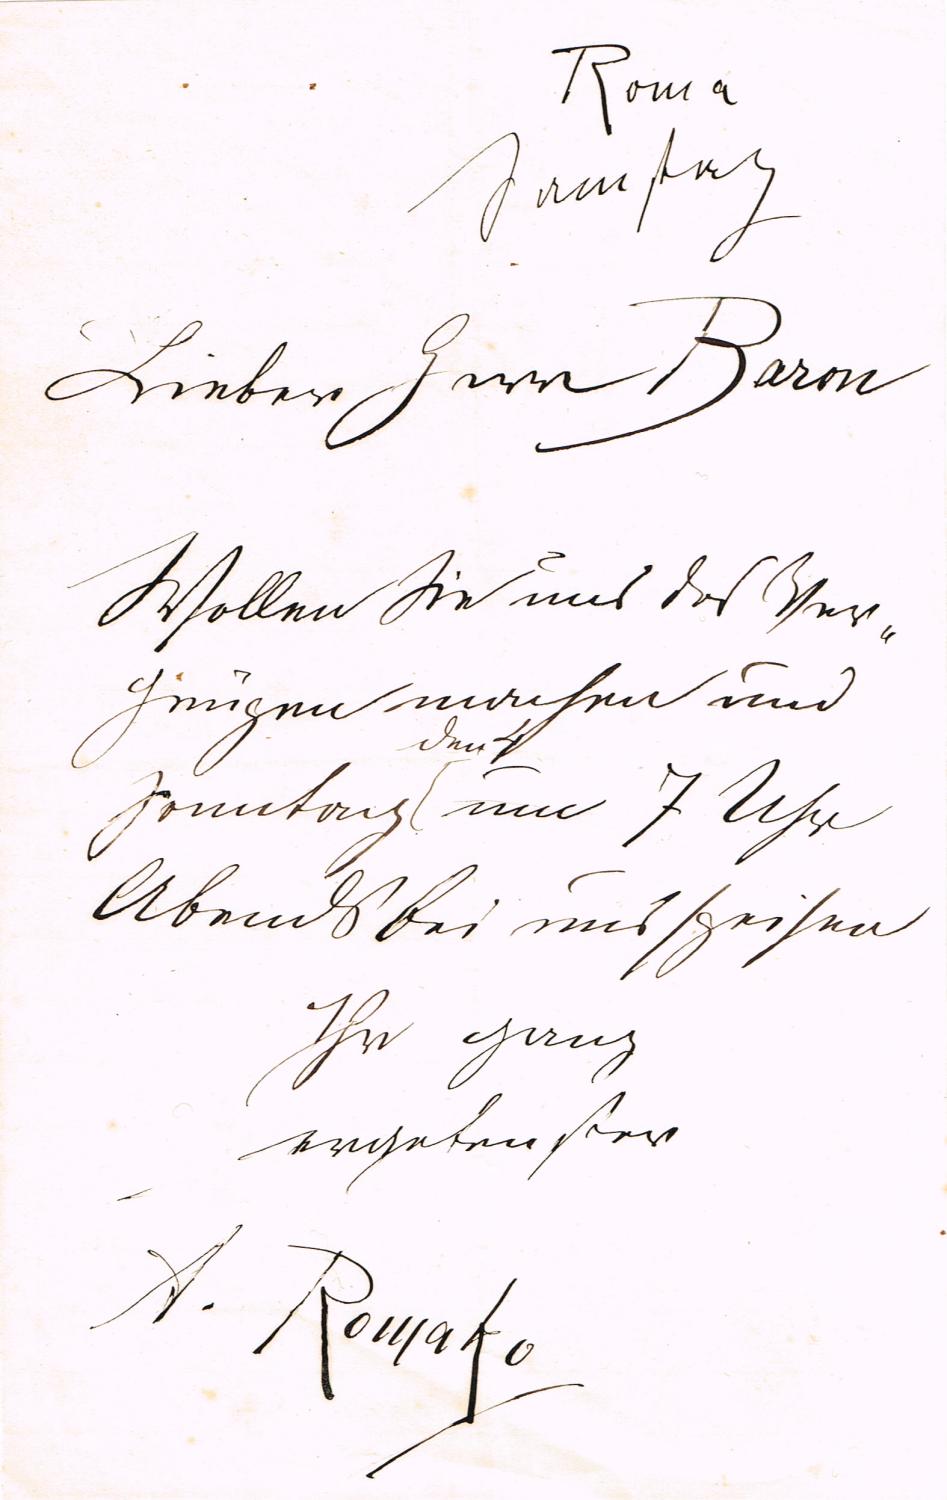 Roma
Samstag
Lieber Herr Baron
Wollen Sie uns das Ver„
gnügen machen und
den 4
Sonntag um 7 Uhr
Abends bei uns speisen
Ihr ganz
ergebenster
A. Romako